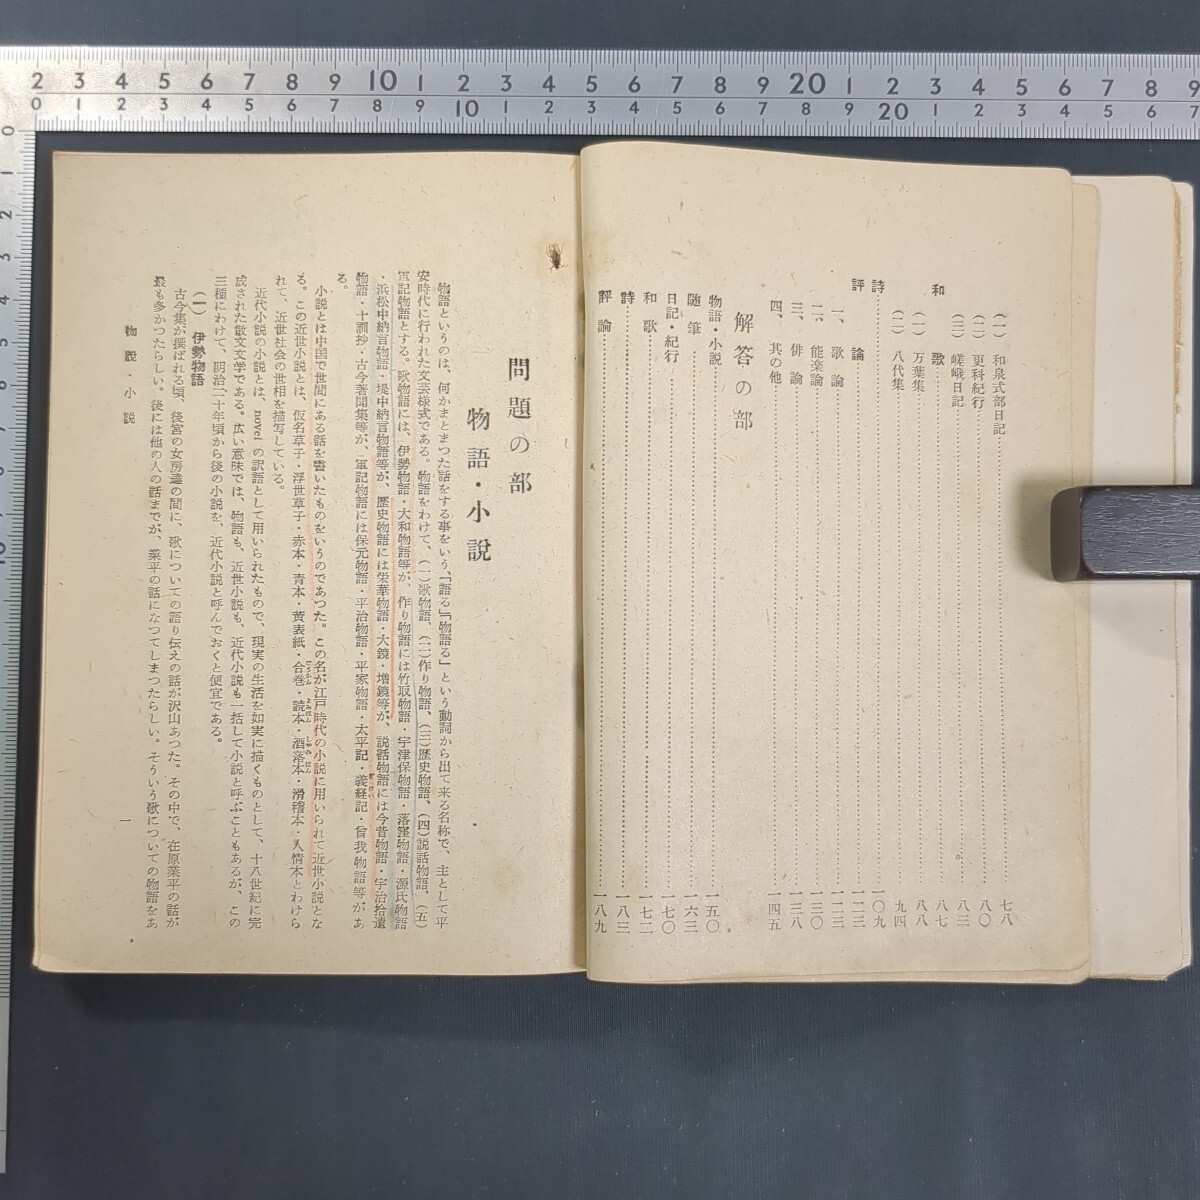 (一) 和泉式部日記 七八
(二) 更科紀行 八〇
(三) 嵯峨日記 八三
和歌 八七
(一) 万葉集 八八
(二) 八代集 九四
詩 一〇九
評論 一二三
一、歌論 一二三
二、能楽論 一三〇
三、俳論 一三八
四、其の他 一四五
解答の部
物語・小説 一五〇
随筆 一六三
日記・紀行 一七〇
和歌 一七二
詩 一八三
評論 一八九
問題の部
物語・小説
物語というのは、何かまとまつた話をする事をいう、「語る」「物語る」という動詞から出て来る名称で、主として平
安時代に行われた文芸様式である。物語をわけて、(一)歌物語、(二)作り物語、(三)歴史物語、(四)説話物語、(五)
軍記物語とする。歌物語には、伊勢物語・大和物語等が、作り物語には竹取物語・宇津保物語・落窪物語・源氏物語
・浜松中納言物語・堤中納言物語等が、歴史物語には栄華物語・大鏡・増鏡等が、説話物語には今昔物語・宇治拾遺
物語・十訓抄・古今著聞集等が、軍記物語には保元物語・平治物語・平家物語・太平記・義経記・曾我物語等があ
る。
小説とは中国で世間にある話を書いたものをいうのであつた。この名が江戸時代の小説に用いられて近世小説とな
る。この近世小説とは、仮名草子・浮世草子・赤本・青本・黄表紙・合巻・読本・洒落本・滑稽本・人情本とわけら
れて、近世社会の世相を描写している。
近代小説の小説とは、novel の訳語として用いられたもので、現実の生活を如実に描くものとして、十八世紀に完
成された散文文学である。広い意味では、物語も、近世小説も、近代小説も一括して小説と呼ぶこともあるが、この
三種にわけて、明治二十年頃から後の小説を、近代小説と呼んでおくと便宜である。
(一) 伊勢物語
古今集が撰ばれる頃、後宮の女房達の間に、歌についての語り伝えの話が沢山あつた。その中で、在原業平の話が
最も多かつたらしい。後には他の人の話までが、業平の話になつてしまつたらしい。そういう歌についての物語をあ
物語・小説
一